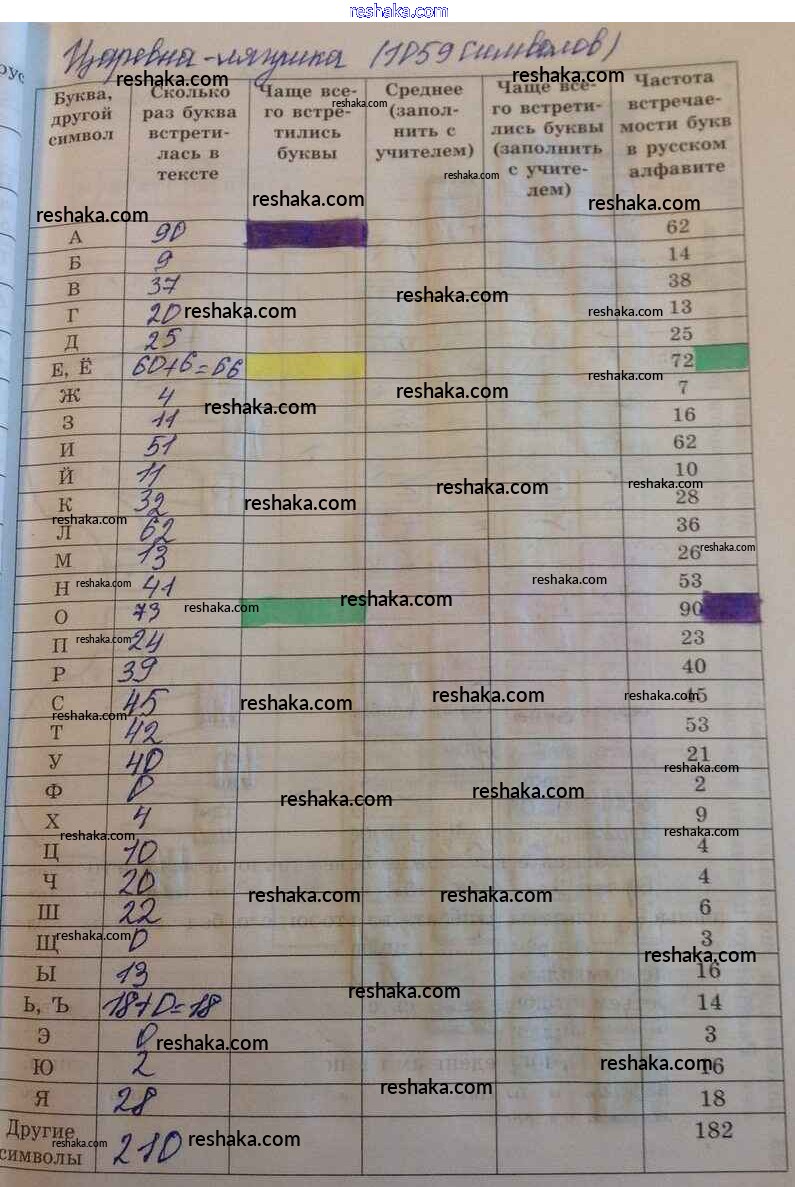 reshaka.com
рус
Царевна-лягушка (1059 символов)
reshaka.com reshaka.com
Буква, другой символ | Сколько раз буква встретилась в тексте | Чаще всего встретились буквы | Среднее (заполнить с учителем) | Чаще всего встретились буквы (заполнить с учителем) | Частота встречаемости букв в русском алфавите
reshaka.com reshaka.com
reshaka.com reshaka.com reshaka.com
А 90 62
Б 9 14
В 37 38
reshaka.com
Г 20 reshaka.com reshaka.com 13
Д 25 25
Е, Ё 60+6=66 72
reshaka.com
Ж 4 reshaka.com 7
З 11 reshaka.com 16
И 51 62
Й 11 10
К 32 reshaka.com reshaka.com reshaka.com 28
reshaka.com
Л 62 36
М 13 26 reshaka.com
Н reshaka.com 41 reshaka.com 53
О 73 reshaka.com reshaka.com 90
П reshaka.com 24 23
Р 39 40
С 45 reshaka.com reshaka.com reshaka.com 45
reshaka.com
Т 42 53
У 40 21
reshaka.com
Ф 0 reshaka.com reshaka.com 2
Х 4 9
reshaka.com reshaka.com
Ц 10 4
Ч 20 reshaka.com reshaka.com 4
Ш 22 6
Щ reshaka.com 0 3
reshaka.com
Ы 13 16
Ь, Ъ 18+0=18 reshaka.com 14
Э 0 reshaka.com 3
Ю 2 reshaka.com 16
Я 28 reshaka.com 18
Другие символы 210 reshaka.com reshaka.com 182